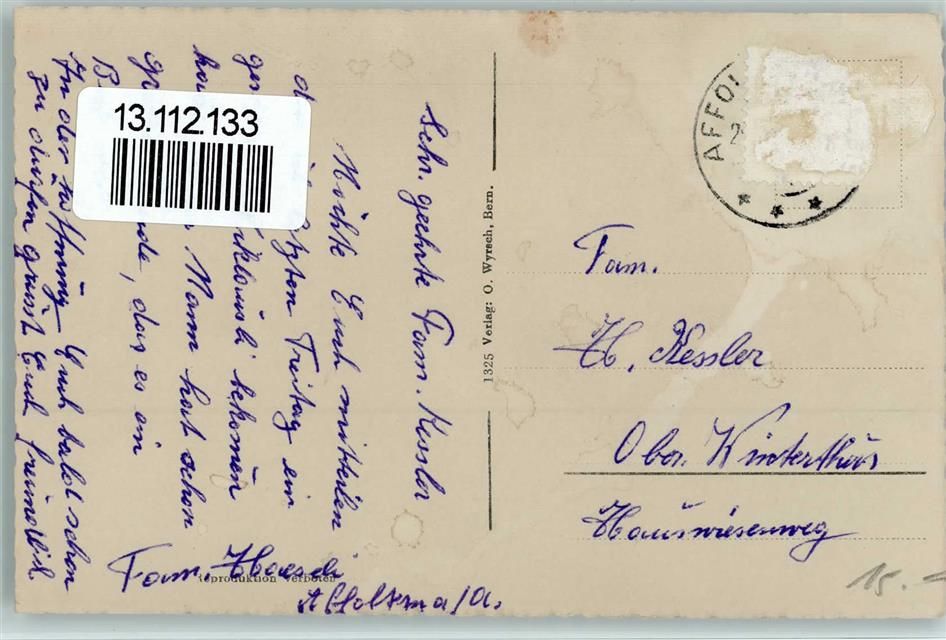 13.112.133
Sehr. geehrte Fam. Kessler
Möchte Euch mitteilen
d letzten Freitag ein
ges iklausli bekomen
ha Mann hat schon
ge de, das es ein
B
In der Hoffnung Euch bald schon
zu dürfen grüsst Euch freundlich
Fam.
Affoltern a/A.
Reproduktion verboten
1325 Verlag: O. Wyrsch, Bern.
AFFO
Fam.
H. Kessler
Ober. Winterthur
Hauswiesenweg
15.-